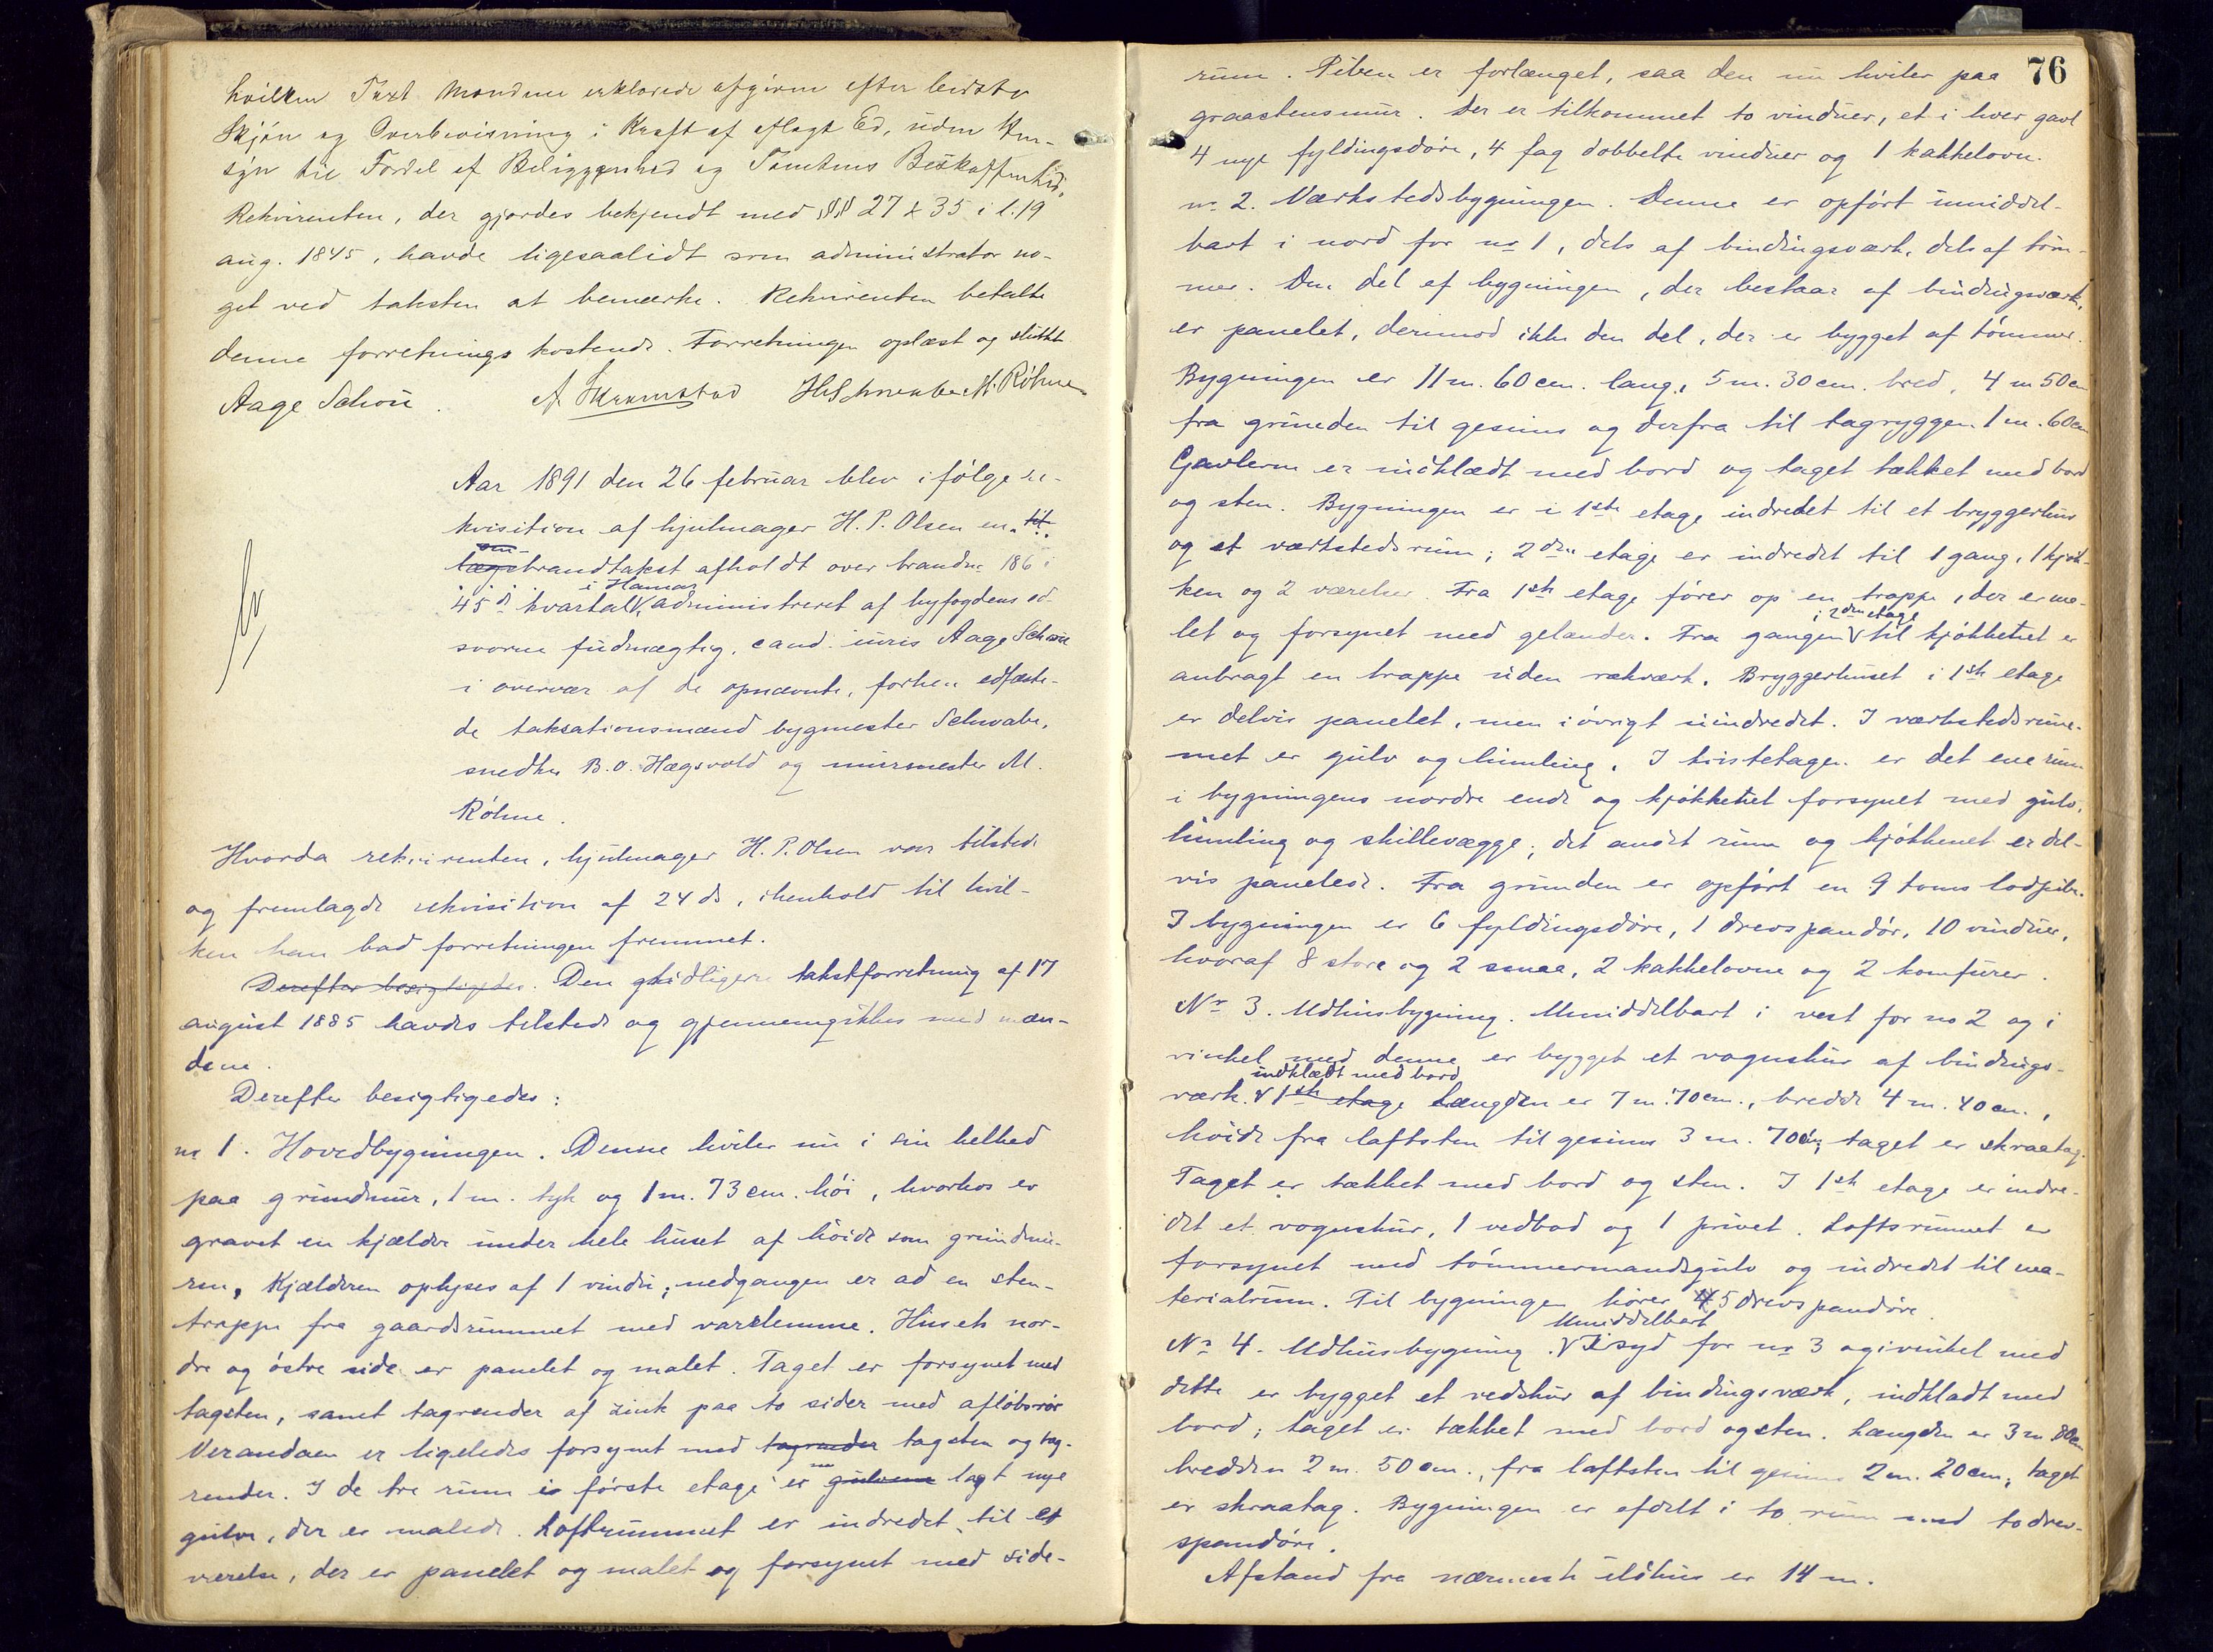 hvilken Taxt Mændene erklærede afgiven efter bedste
Skjøn og Overbevisning i Kraft af aflagt Ed, uden Hen-
syn til Fordel af Beliggenhed og Tomtens Beskaffenhed.
Rekvirenten, der gjordes bekjendt med §§ 27 & 35 i l. 19
aug. 1845, havde ligesaalidt som administrator no-
get ved taksten at bemærke. Rekvirenten betalte
denne forretnings kostende. Forretningen oplæst og sluttet
Aage Schou. H Schwabe M. Røhne
Aar 1891 den 26 februar blev ifølge re-
kvisition af hjulmager H. P. Olsen en til-
om-
lægsbrandtakst afholdt over brandnr 186 i
i Hamar
45de kvartal administreret af byfogdens ed-
svorne fuldmægtig, cand. juris Aage Schou
i overvær af de opnævnte, forhen edfæste-
de taksationsmænd bygmester Schwabe,
snedker B. O. Hægsvold og murmester M.
Røhne.
Hvorda rekvirenten, hjulmager H. P. Olsen var tilstede
og fremlagde rekvisition af 24 ds, i henhold til hvil-
ken han bad forretningen fremmet.
Derefter besigtigedes. Den tidligere takstforretning af 17
august 1885 havdes tilstede og gjennemgikkes med mæn-
dene.
Derefter besigtigedes:
no 1. Hovedbygningen. Denne hviler nu i sin helhed
paa grundmur, 1 m. tyk og 1 m. 73 cm. høi, hvorhos er
gravet en kjælder under hele huset af høide som grundmu-
ren, Kjælderen oplyses af 1 vindu; nedgangen er ad en sten-
trappe fra gaardsrummet med vandlemme. Husets nor-
dre og østre side er panelet og malet. Taget er forsynet med
tagsten, samt tagrender af zink paa to sider med afløbsrør
Verandaen er ligeledes forsynet med tagrender tagsten og tag-
render. I de tre rum i første etage er nu gulvene lagt nye
gulve, der er malede. Loftsrummet er indredet til et
værelse, der er panelet og malet og forsynet med side-
76
rum. Piben er forlænget, saa den nu hviler paa
graastensmur. Der er tilkommet to vinduer, et i hver gavl
4 nye fyldingsdøre, 4 fag dobbelte vinduer og 1 kakkelovn.
no 2. Værkstedsbygningen. Denne er opført umiddel-
bart i nord for no 1, dels af bindingsværk, dels af tøm-
mer. Den del af bygningen, der bestaar af bindingsværk,
er panelet, derimod ikke den del, der er bygget af tømmer.
Bygningen er 11 m. 60 cm. lang, 5 m. 30 cm. bred, 4 m 50 cm
fra grunden til gesims og derfra til tagryggen 1 m. 60 cm
Gavlerne er indklædt med bord og taget tækket med bord
og sten. Bygningen er i 1ste etage indredet til et bryggerhus
og et værkstedsrum; 2den etage er indredet til 1 gang, 1 kjøk-
ken og 2 værelser. Fra 1ste etage fører op en trappe, der er ma-
i 2den etage
let og forsynet med gelænder. Fra gangen til kjøkkenet er
anbragt en trappe uden rækværk. Bryggerhuset i 1ste etage
er delvis panelet, men iøvrigt uindredet. I værkstedsrum-
met er gulv og himling. I kvistetagen er det ene rum
i bygningens nordre ende og kjøkkenet forsynet med gulv,
himling og skillevægge; det andet rum og kjøkkenet er del-
vis panelede. Fra grunden er opført en 9 toms lodpibe.
I bygningen er 6 fyldingsdøre, 1 drevspandør, 10 vinduer,
hvoraf 8 store og 2 smaa, 2 kakkelovne og 2 komfurer.
No 3. Udhusbygning. Umiddelbart i vest for no 2 og i
vinkel med denne er bygget et vognskur af bindings-
indklædt med bord
værk. 1ste etage Længden er 7 m. 70 cm., bredde 4 m. 40 cm.,
høide fra laftsten til gesims 3 m. 70 cm; taget er skraatag.
Taget er tækket med bord og sten. I 1ste etage er indre-
det et vognskur, 1 vedbod og 1 privet. Loftsrummet er
forsynet med tømmermandsgulv og indredet til ma-
terialrum. Til bygningen hører 5 drevspandøre.
Umiddelbart
No 4. Udhusbygning. I syd for no 3 og i vinkel med
dette er bygget et vedskur af bindingsværk, indklædt med
bord; taget er tækket med bord og sten. Længden er 3 m 80 cm
bredden 2 m. 50 cm., fra laftsten til gesims 2 m. 20 cm; taget
er skraatag. Bygningen er afdelt i to rum med to drev-
spandøre.
Afstand fra nærmeste ildhus er 14 m.